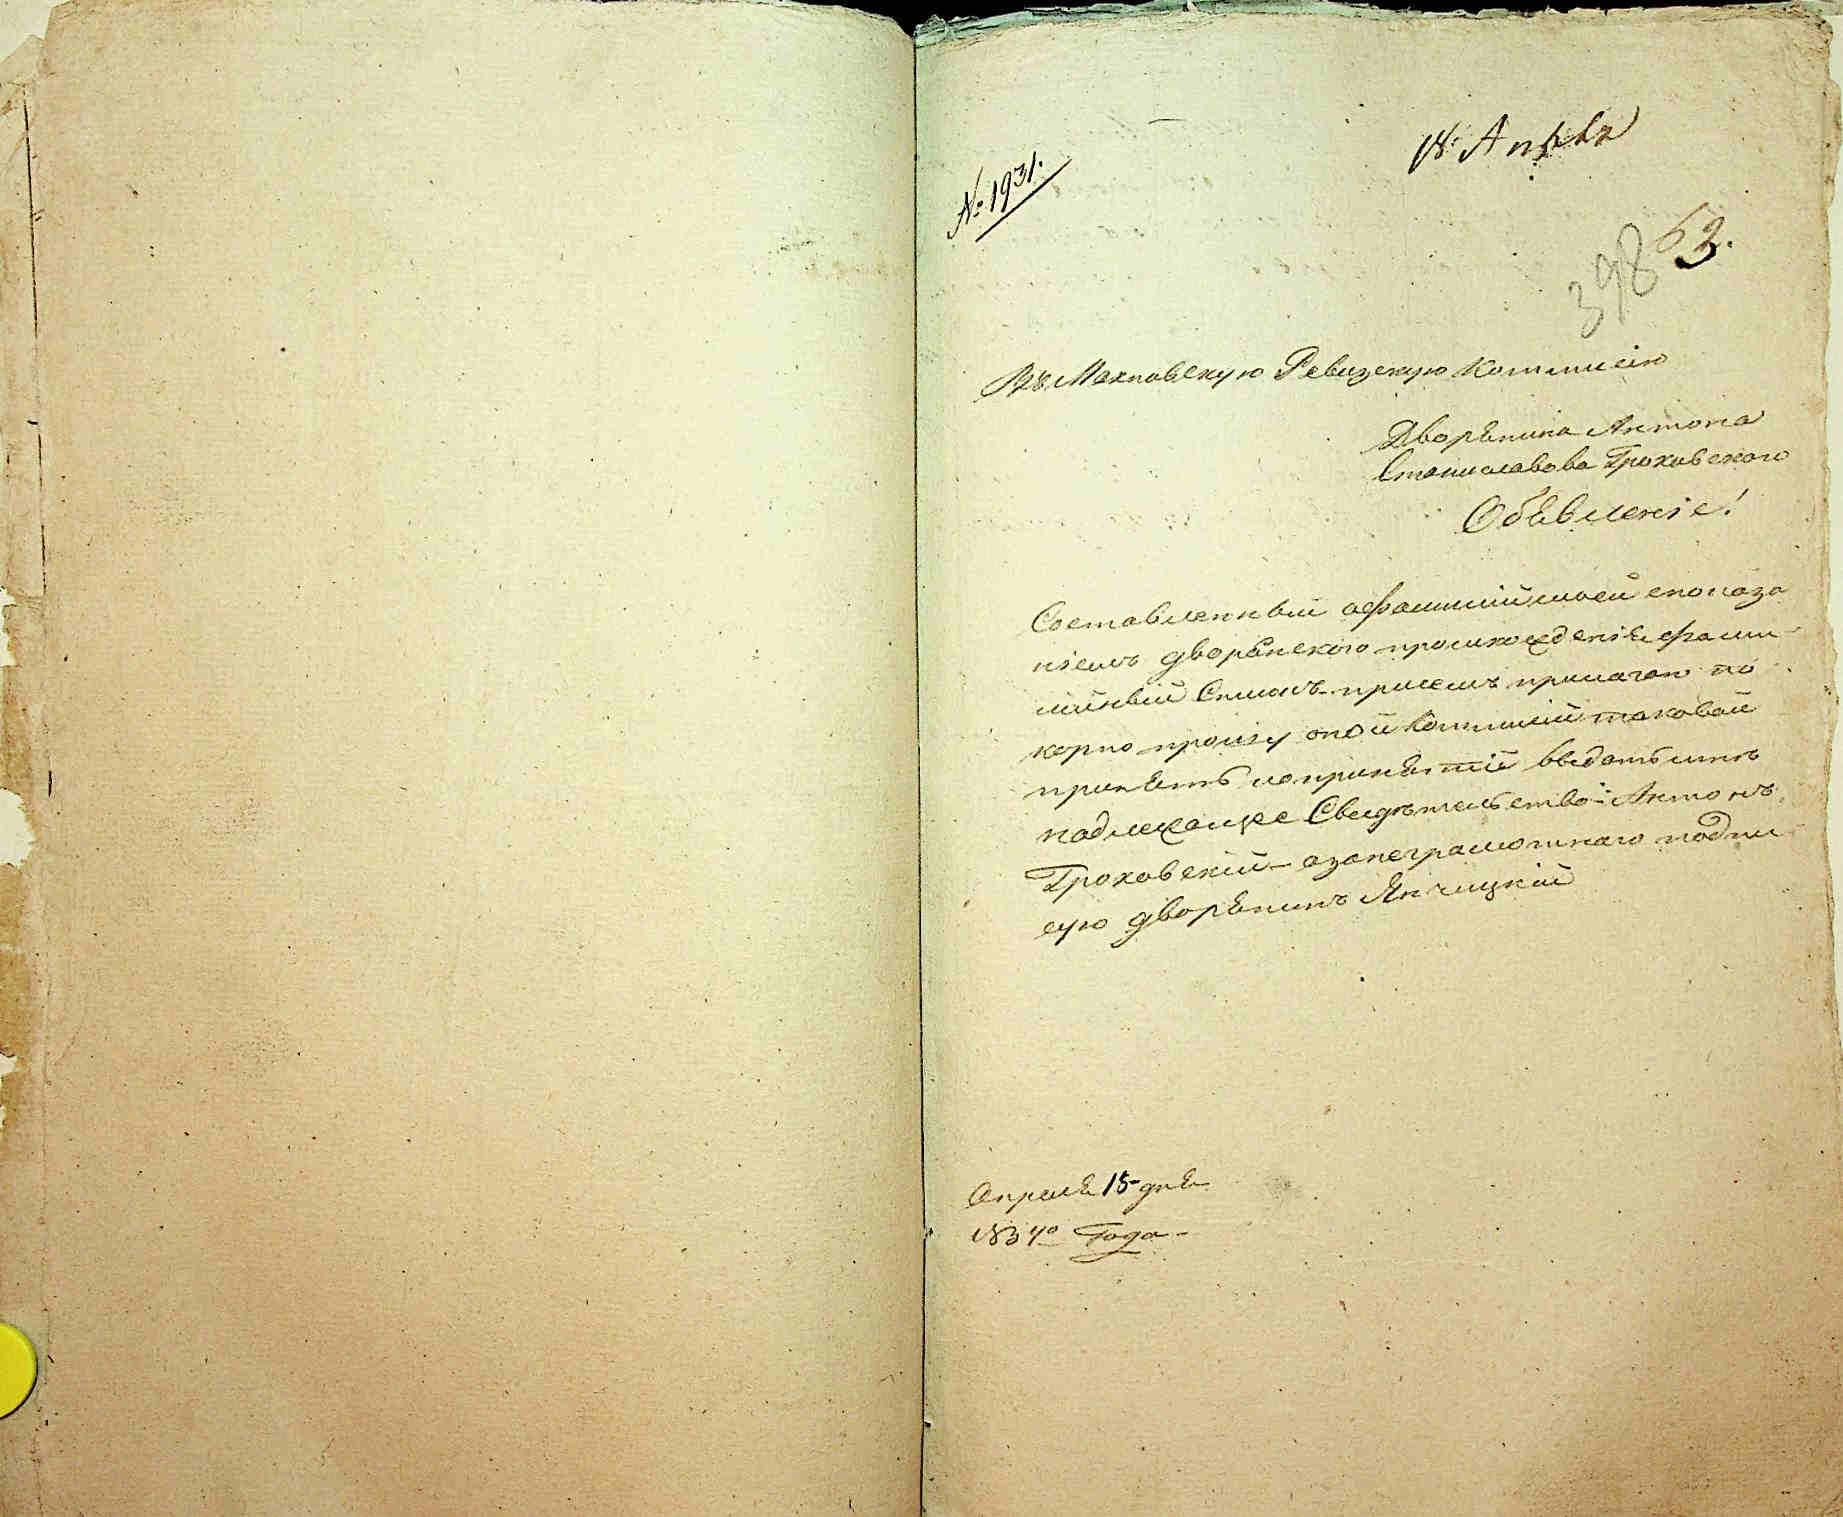 18 Апреля
№ 1931.
63.
398
Въ Махновскую Ревизскую Коммисію
Дворянина Антона
Станиславова Гроховского
Объявленіе!
Составленный офамиліи моей споказа
ніемъ дворянского происхожденія фами-
лійный Списокъ присемъ прилагаю по
корно прошу оной Коммисіи таковой
принять ипринятіи выдать мнѣ
надлежащее Свидѣтельство Антонъ
Гроховскій азанеграмотнаго подпи
сую дворянинъ Янчицкій
Апреля 15 дня
1834го Года